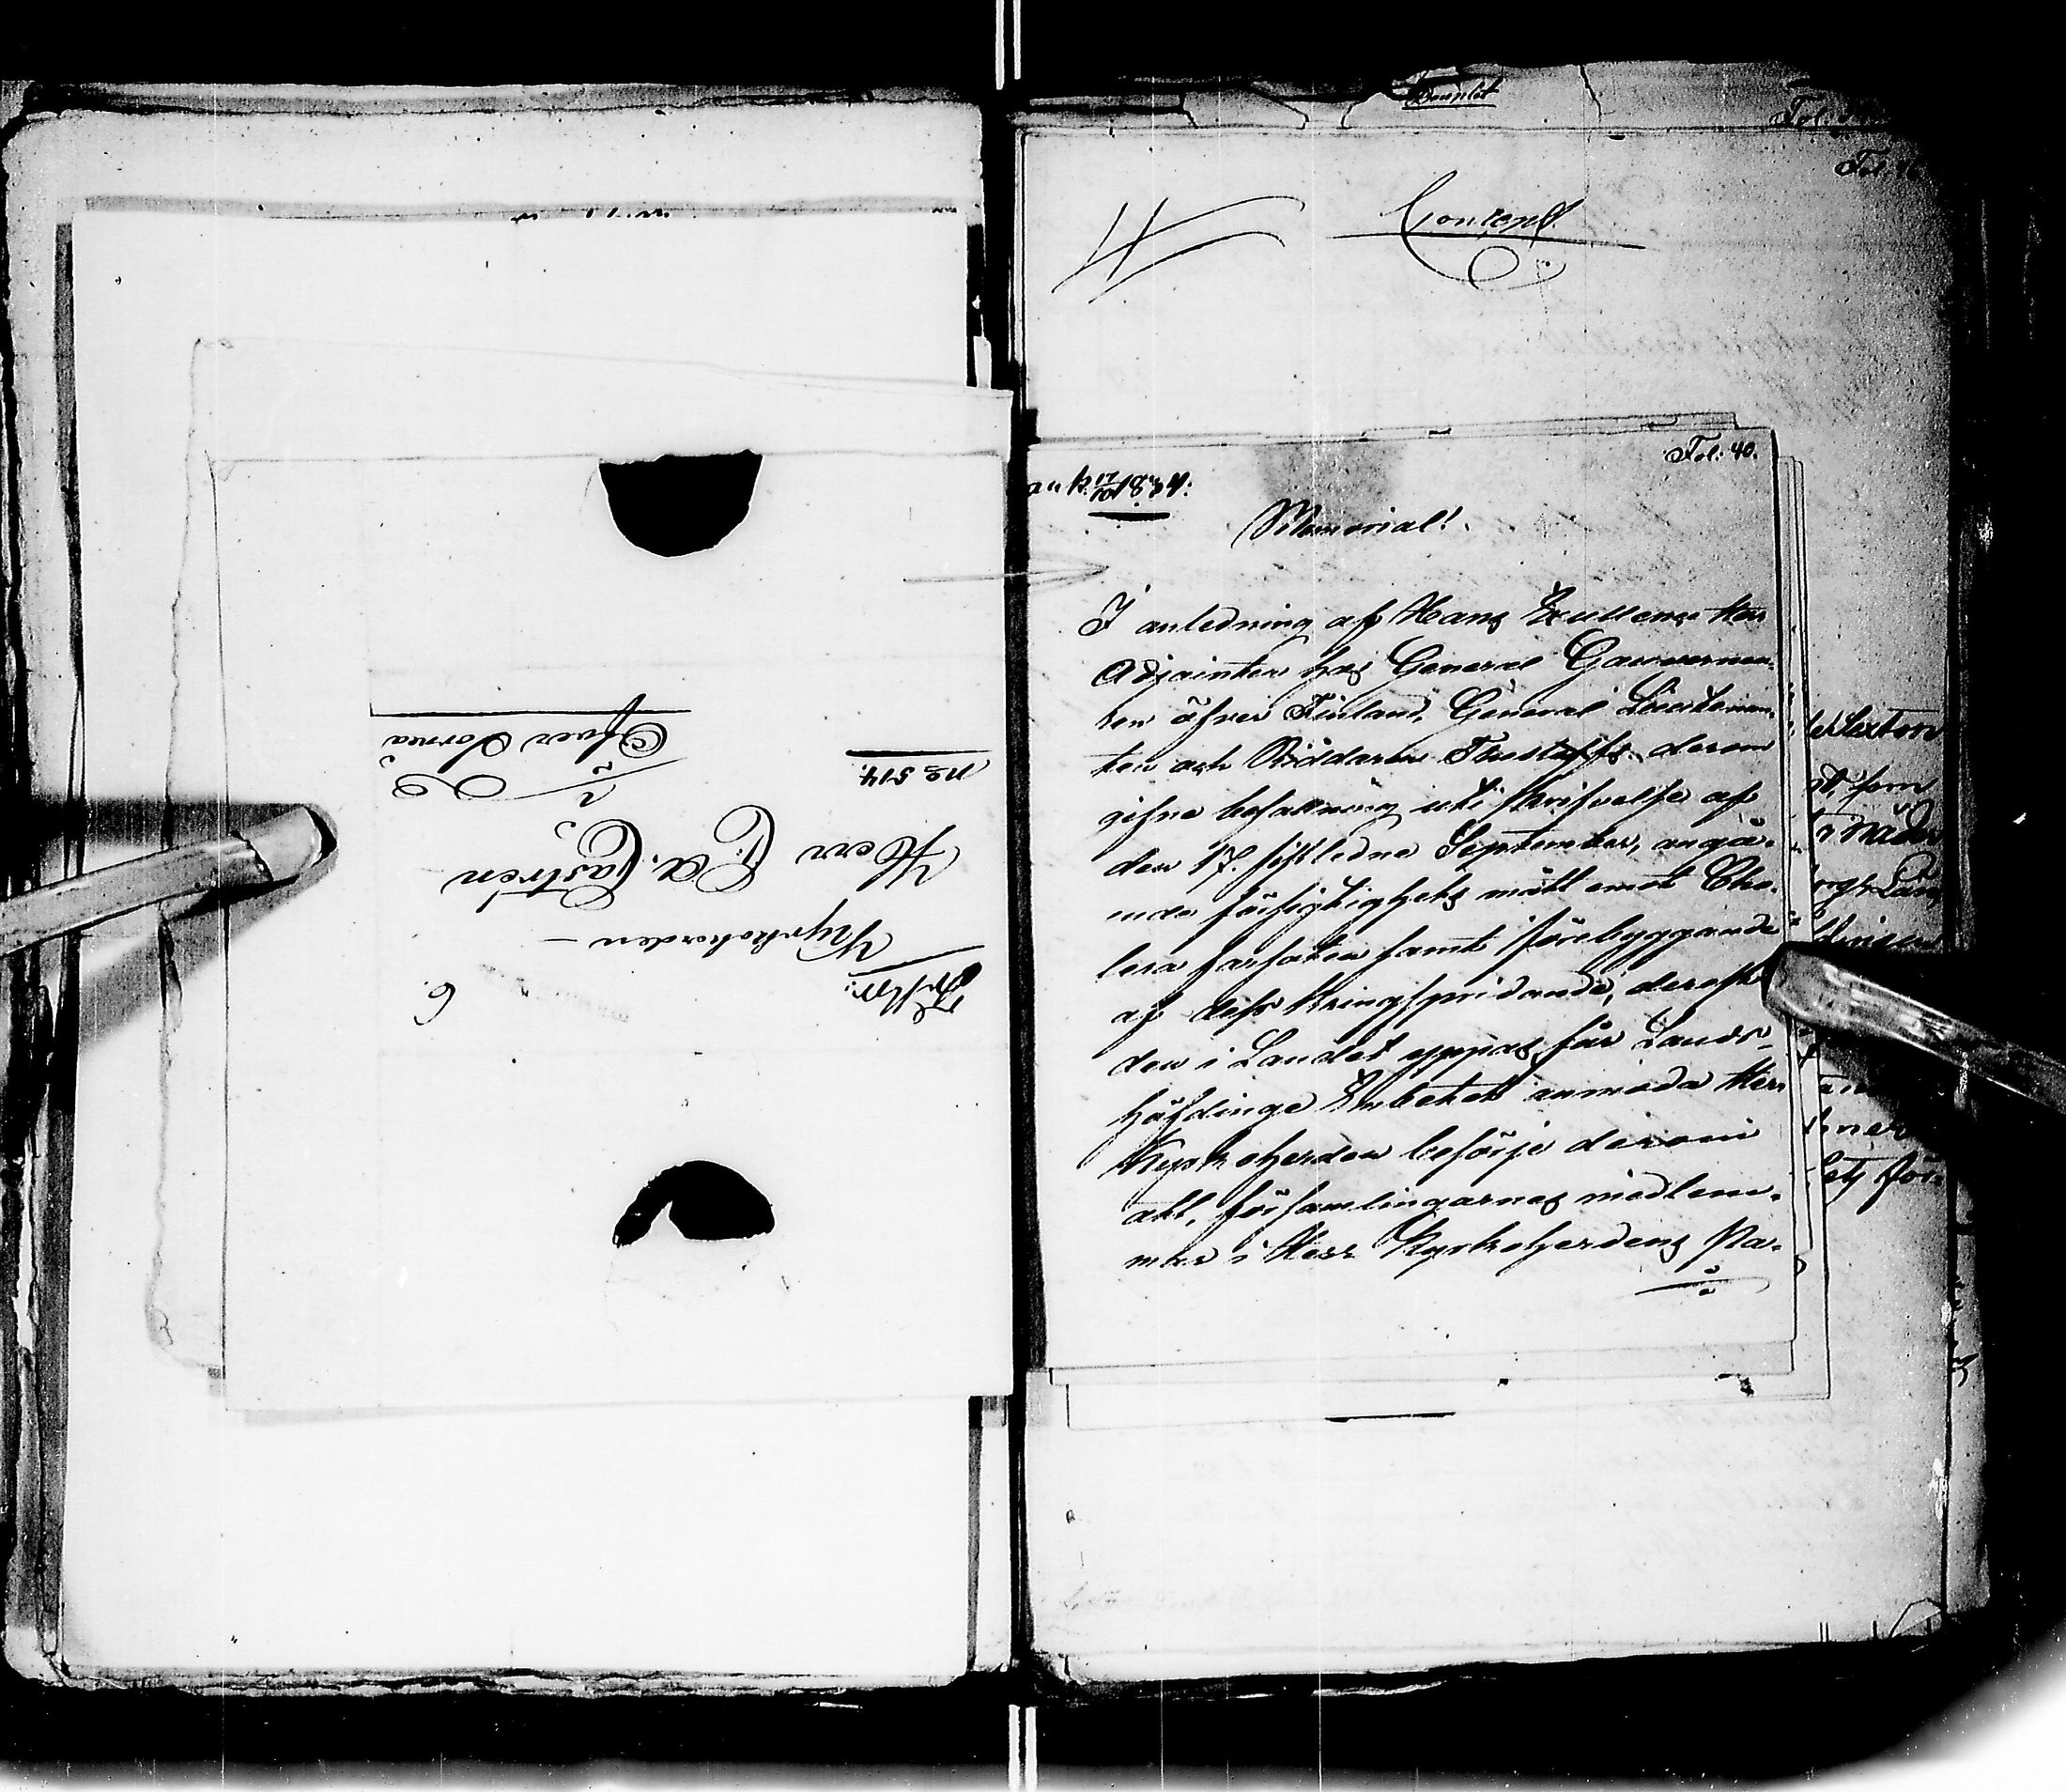 Kyrkoherden
Herr C. A. Castrén
No 514.
Öfver Tornea
6.
Fol: 40.
ank. 17/10 1834:
Memorial!
I anledning af Hans Excellence Herr
Adjointen hos General Gouverneu-
ren öfver Finland, General Lieutenan-
ten och Riddaren Thesleffs derom
gifne befallning uti skrifvelse af
den 17. sistledne September, angå-
ende försigtighets mått emot Cho-
lera farsoten samt förebyggande
af dess kringspridande, derest
den i Landet yppas, får Lands-
höfdinge Embetet anmoda Herr
Kyrkoherden besörja derom
att, församlingarnes medlem-
mar i Herr Kyrkoherdens Pa-